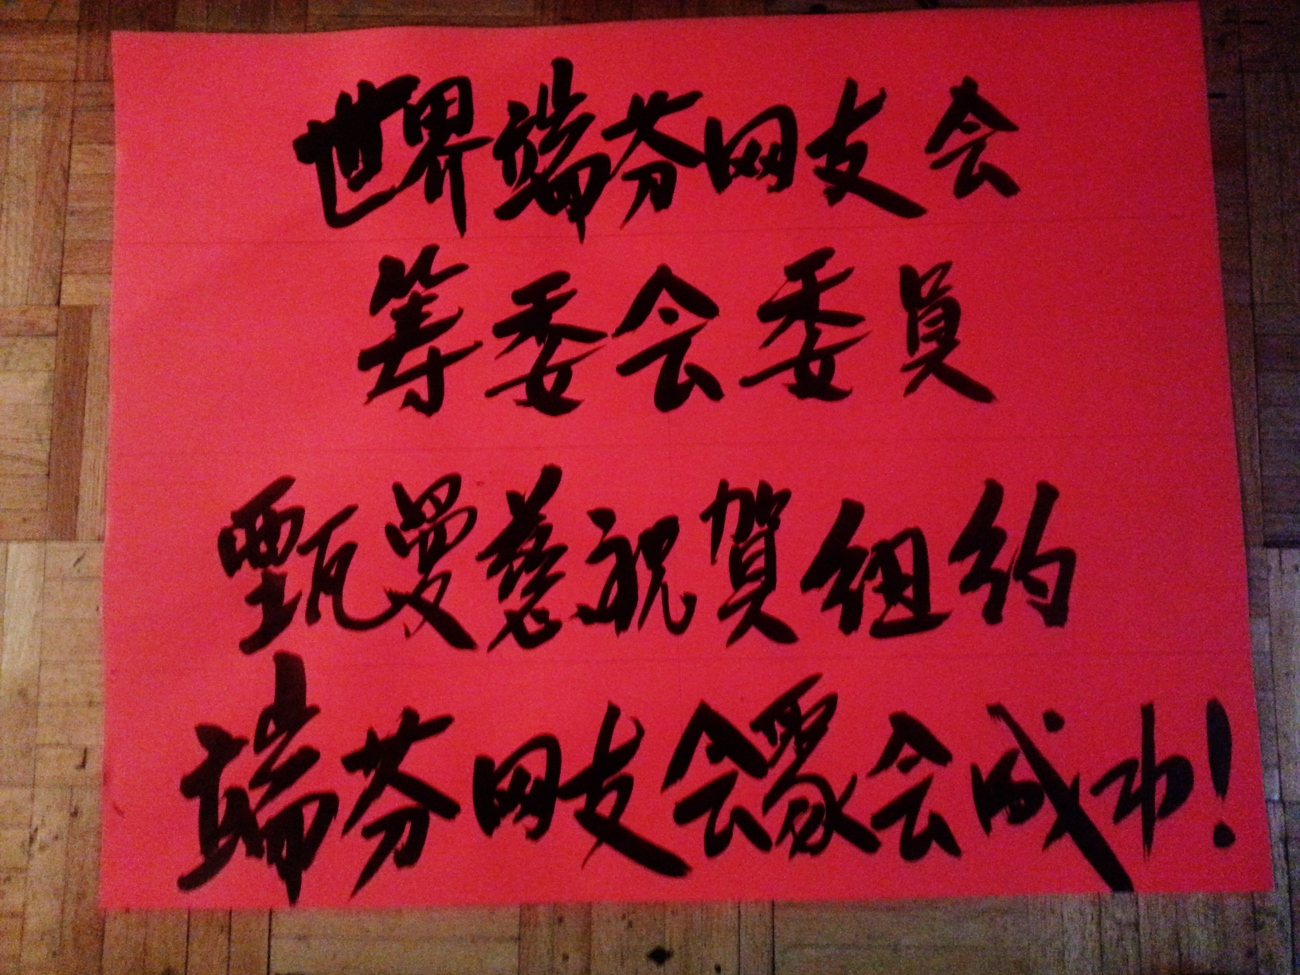 世界端芬网友会
筹委会委員
甄曼慧祝賀纽约
端芬网友会聚会成功!